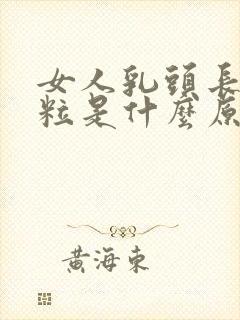 女人乳頭長
粒是什麼原
黃海東